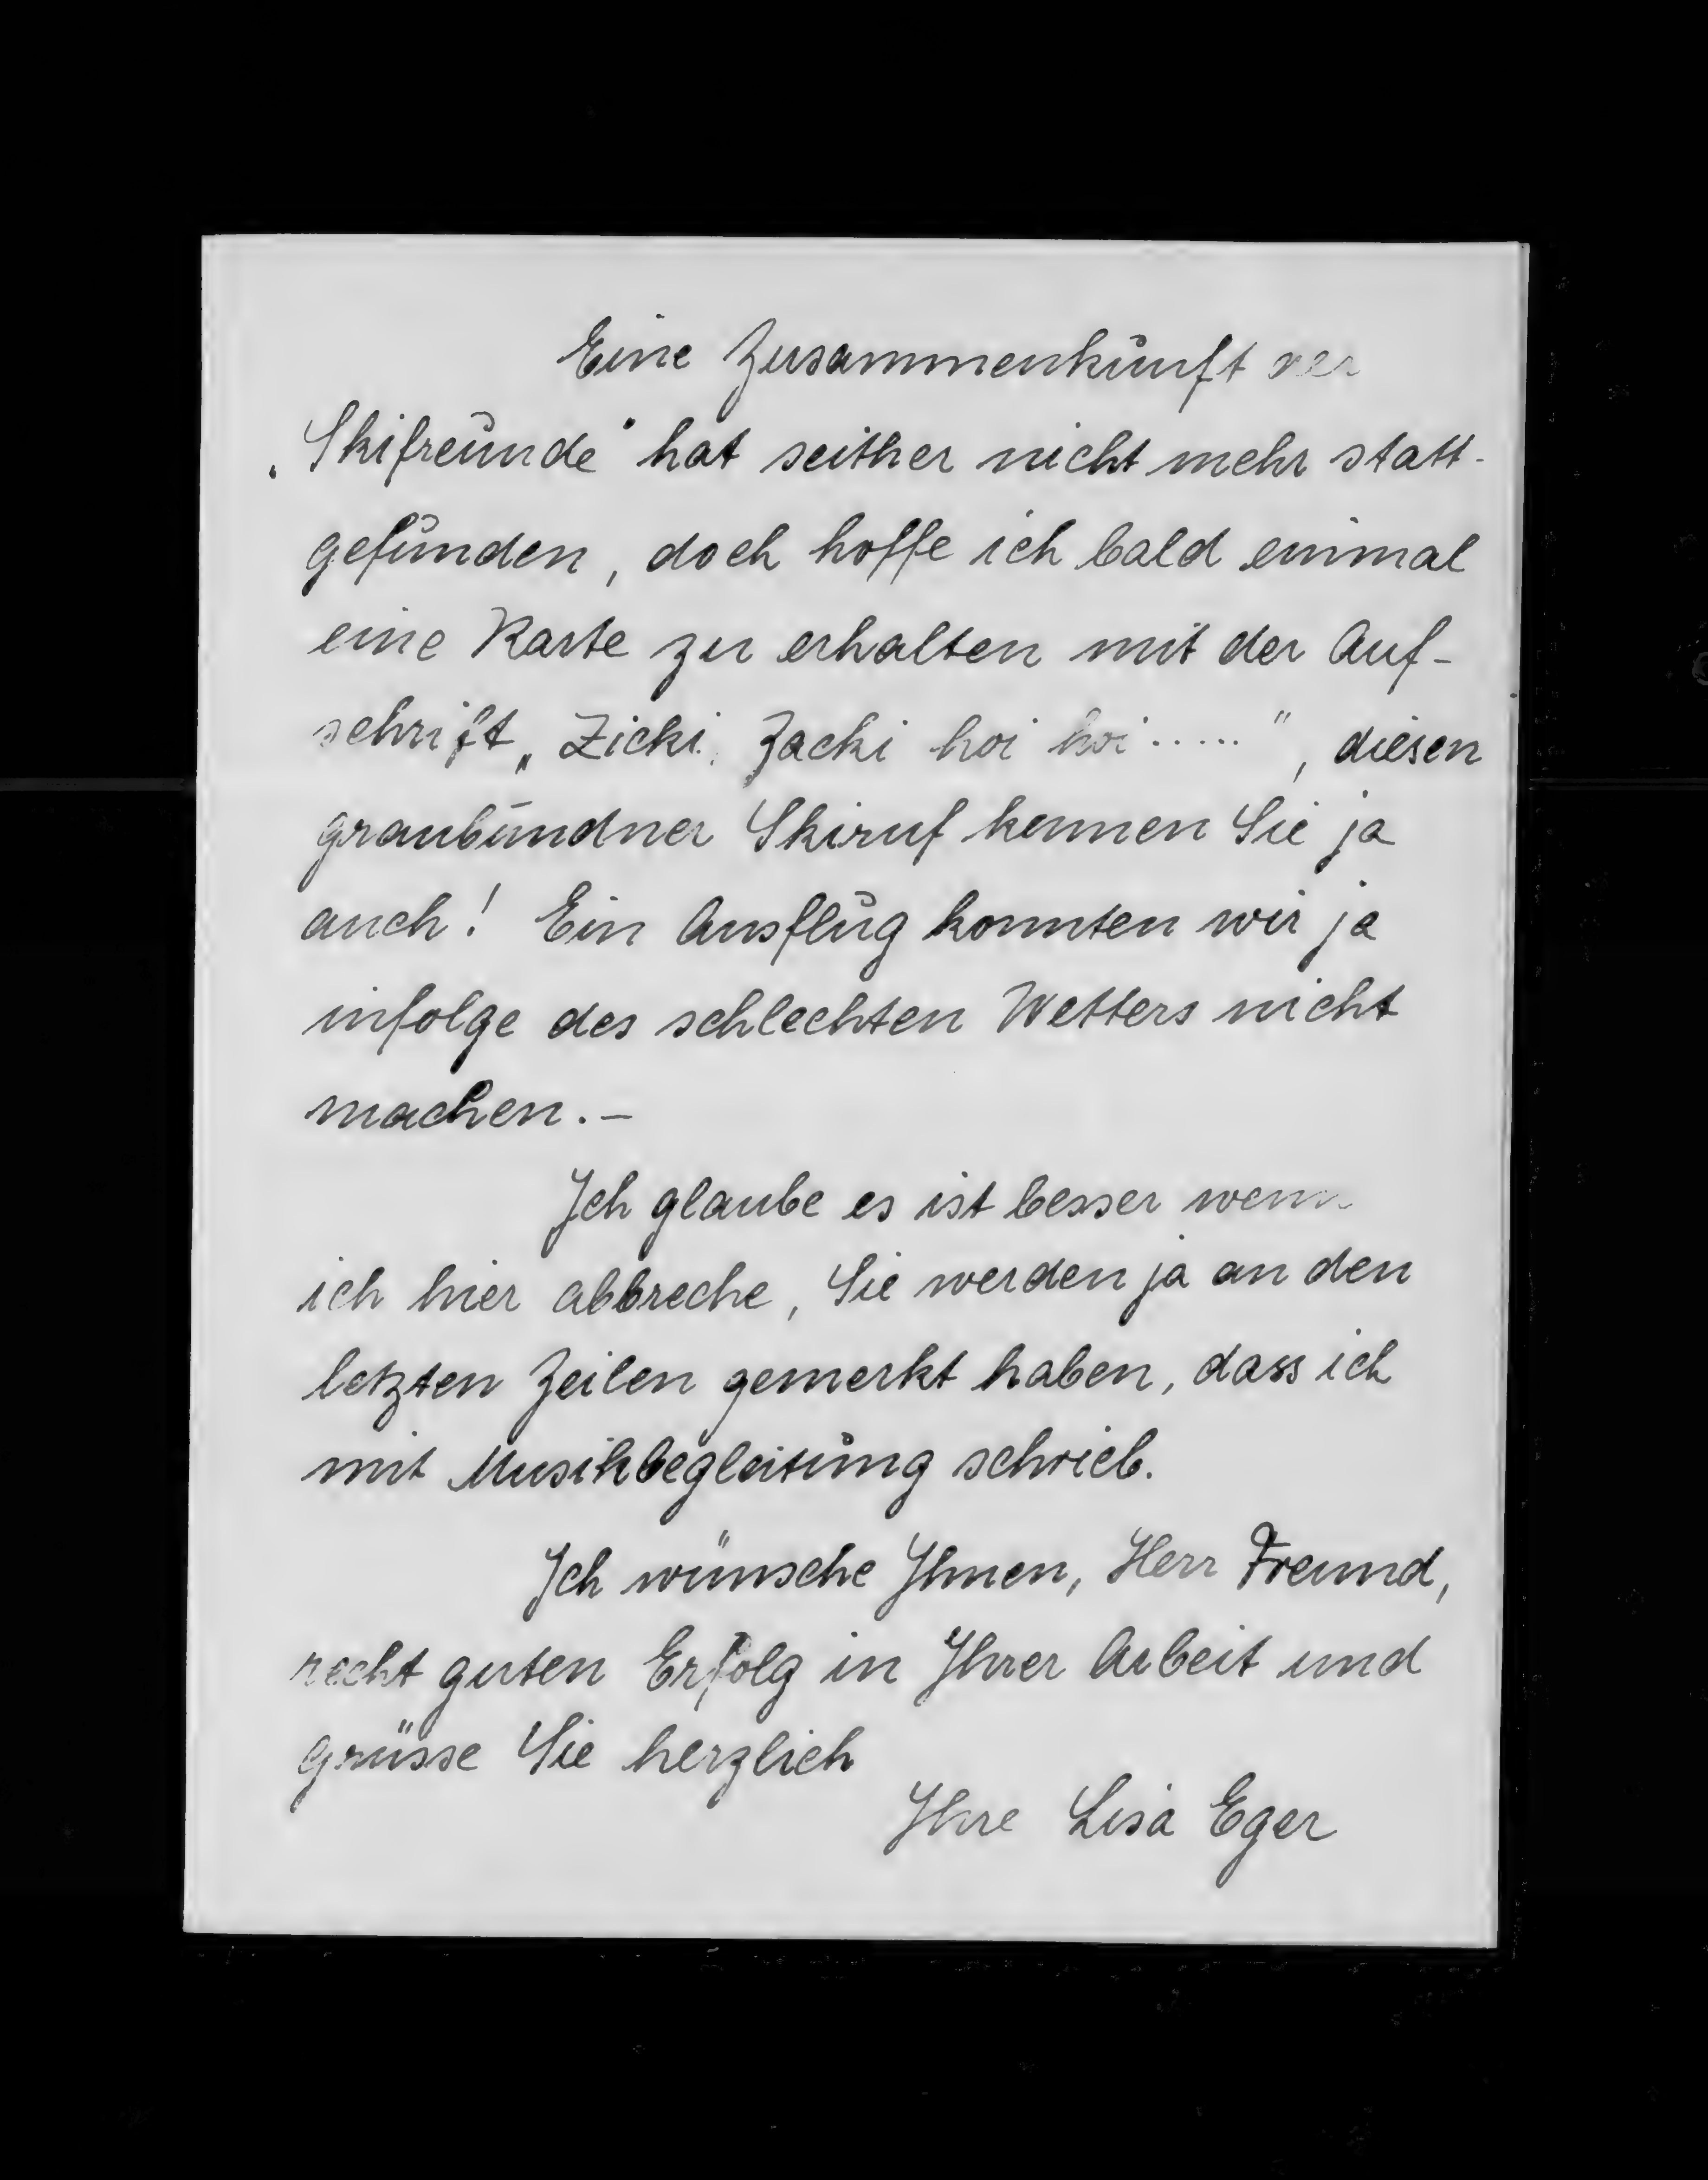 Eine Zusammenkunft der
„Skifreunde" hat seither nicht mehr statt-
gefunden, doch hoffe ich bald einmal
eine Karte zu erhalten mit der Auf-
schrift „Zicki, Zacki hoi hoi.....", diesen
graubündner Skiruf kennen Sie ja
auch! Ein Ausflug konnten wir ja
infolge des schlechten Wetters nicht
machen.-
Ich glaube es ist besser wenn
ich hier abbreche, Sie werden ja an den
letzten Zeilen gemerkt haben, dass ich
mit Musikbegleitung schrieb.
Ich wünsche Ihnen, Herr Freund,
recht guten Erfolg in Ihrer Arbeit und
grüsse Sie herzlich
Ihre Lisa Eger